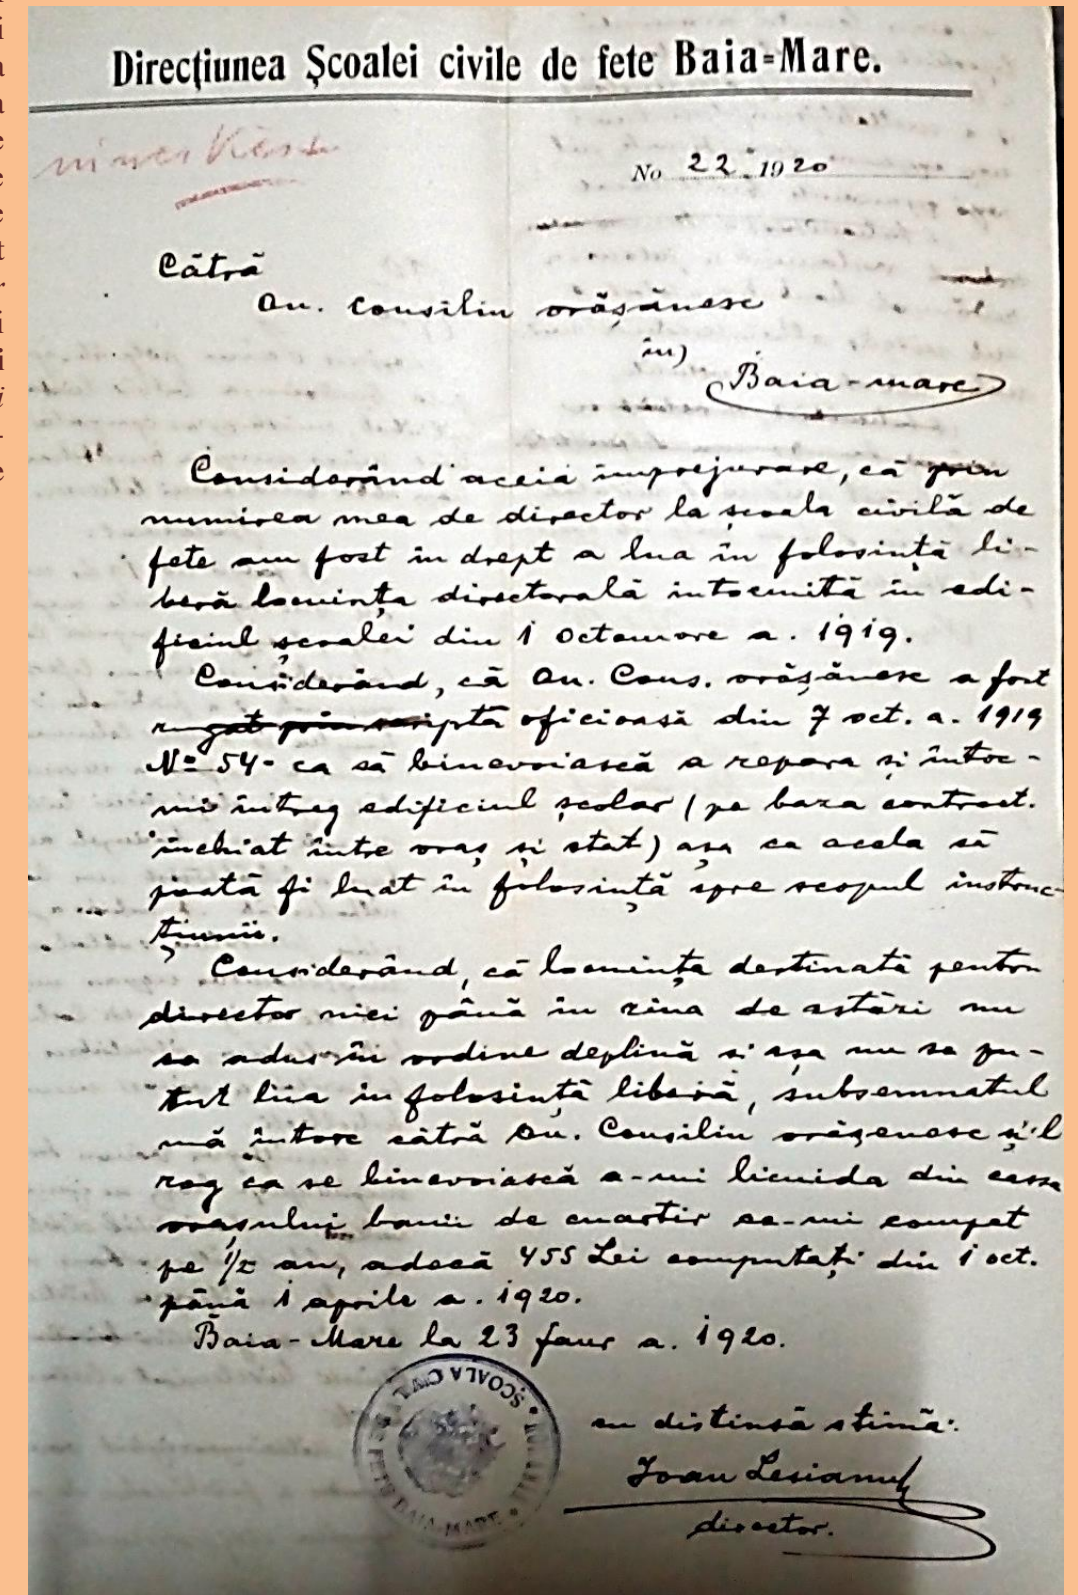 Direcțiunea Școalei civile de fete Baia=Mare.
No 22. 1920
Cătră
On. Consiliu orășănesc
în)
Baia-mare
Considerând aceia împrejurare, că prin
numirea mea de director la școala civilă de
fete am fost în drept a lua în folosință li-
beră locuința directorală intocmită în edi-
ficiul școalei din 1 Octomvre a. 1919.
Considerând, că On. Cons. orășănesc a fost
rugat prin scripta oficioasă din 7 oct. a. 1919
No 54- ca să binevoiască a repara și întoc-
mi întreg edificiul școlar (pe baza contract.
încheiat între oraș și stat) așa ca acela să
poată fi luat în folosință spre scopul instruc-
țiunii.
Considerând, că locuința destinată pentru
director nici până în ziua de astăzi nu
sa adus în ordine deplină si așa nu sa pu-
tut lua in folosință liberă, subsemnatul
mă întorc cătră On. Consiliu orășenesc și'l
rog ca se binevoiască a-mi licuida din cassa
orașului banii de cuartir ce-mi compet
pe 1/2 an, adecă 455 Lei computați din 1 oct.
până 1 aprile a. 1920.
Baia-Mare la 23 faur a. 1920.
ȘCOALA CIVILĂ DE FETE BAIA-MARE
cu distinsă stimă:
Ioan Lesianul
director.